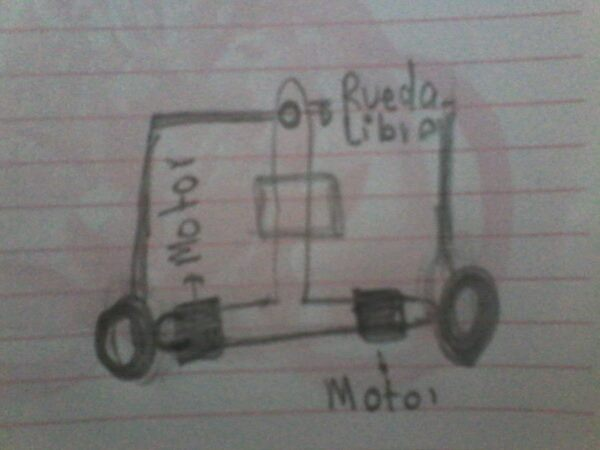 Rueda
Libre
Motor
Motor